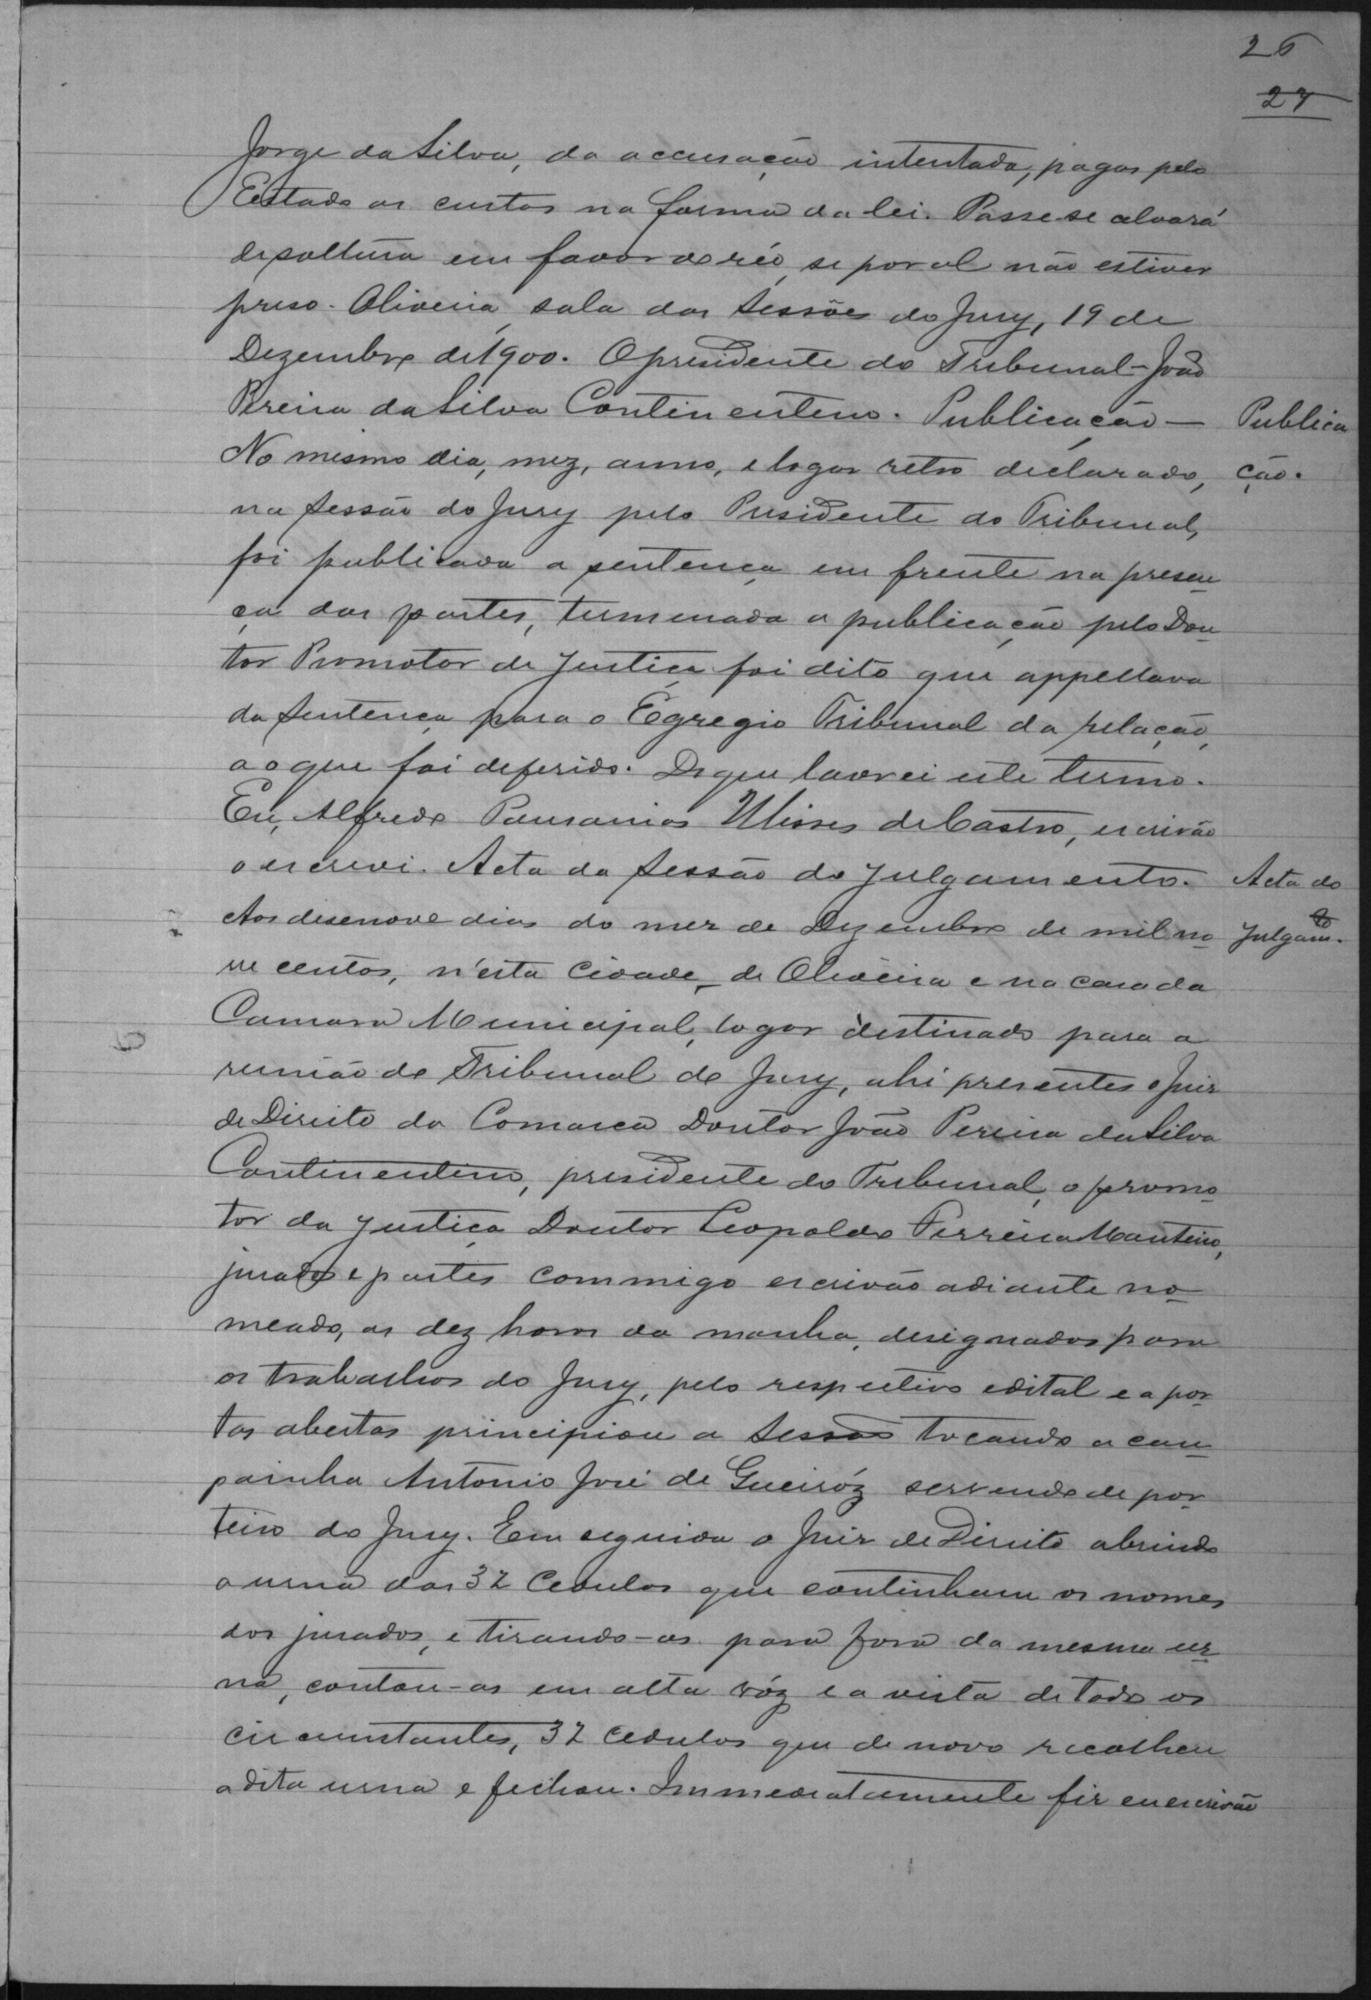 26
27
Jorge da Silva, da accusação intentada, pagas pelo
Estado as custas na forma da lei. Passe-se alvará
de soltura em favor do réo, se por al não estiver
preso. Oliveira, sala das Sessões do Jury, 19 de
Dezembro de 1900. O presidente do Tribunal - João
Pereira da Silva Continentino. Publicação —
Publica
No mesmo dia, mez, anno, e logar retro declarado,
ção.
na Sessão do Jury pelo Presidente do Tribunal,
foi publicada a sentença em frente na presen
ça das partes, termenada a publicação pelo Dou
tor Promotor de Justiça foi dito que appellava
da Sentença para o Egregio Tribunal da relação,
ao que foi deferido. De que lavrei este termo.
Eu, Alfredo Pausanias Ulisses de Castro, escrivão
o escrevi. Acta da Sessão do Julgamento.
Acta do
Aos desenove dias do mez de Dezembro de mil no
Julgam.to
ve centos, n'esta Cidade, de Oliveira e na casa da
Camara Municipal, logar destinado para a
reunião do Tribunal do Jury, ahi presentes o Juiz
de Direito da Comarca Doutor João Pereira da Silva
Continentino, presidente do Tribunal, o promo
tor da Justiça Doutor Leopoldo Ferreira Monteiro,
jurados e partes commigo escrivão adiante no
meado, as dez horas da manha, designados para
os trabalhos do Jury, pelo respectivo edital e a por
tas abertas principiou a Sessão tocando a cam
painha Antonio José de Gueiróz servendo de por
teiro do Jury. Em seguida o Juiz de Direito abrindo
a urna das 32 Cedulas que continham os nomes
dos jurados, e tirando-as para fora da mesma ur
na, contou-as em alta vóz e a vista de todos os
circumstantes, 32 cedulas que de novo recolheu
a dita urna e fechou. Immediatamente fiz eu escrivão